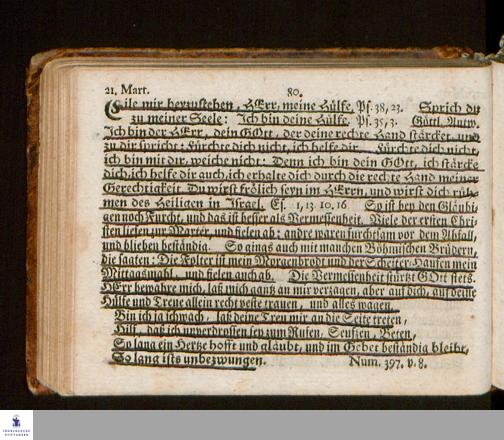 21. Mart. 80.
Eile mir beyzustehen, HErr, meine Hülfe, Ps. 38, 23. Sprich du
zu meiner Seele: Ich bin deine Hülfe, Ps. 35, 3. Göttl. Antw.
Ich bin der HErr, dein GOtt, der deine rechte Hand stärcket, und
zu dir spricht: Fürchte dich nicht, ich helfe dir. Fürchte dich nicht,
ich bin mit dir, weiche nicht: Denn ich bin dein GOtt, ich stärcke
dich, ich helfe dir auch, ich erhalte dich durch die rechte Hand meiner
Gerechtigkeit. Du wirst frölich seyn im HErrn, und wirst dich rüh-
men des Heiligen in Israel. Es. 1, 13. 10. 16. So ist bey den Gläubi-
gen noch Furcht, und das ist besser als Vermessenheit. Viele der ersten Chri-
sten liefen zur Marter, und fielen ab: andre waren furchtsam vor dem Abfall,
und blieben beständig. So gings auch mit manchen Böhmischen Brüdern,
die sagten: Die Folter ist mein Morgenbrodt und der Scheiter-Haufen mein
Mittagsmahl, und fielen auch ab. Die Vermessenheit stürtzt GOtt stets.
HErr bewahre mich, laß mich gantz an mir verzagen, aber auf dich, auf deine
Hülfe und Treue allein recht veste trauen, und alles wagen.
Bin ich ja schwach, laß deine Treu mir an die Seite treten,
Hilf, daß ich unverdrossen sey zum Rufen, Seufzen, Beten,
So lang ein Hertze hofft und gläubt, und im Gebet beständig bleibt,
So lang ists unbezwungen. Num. 397. v. 8.